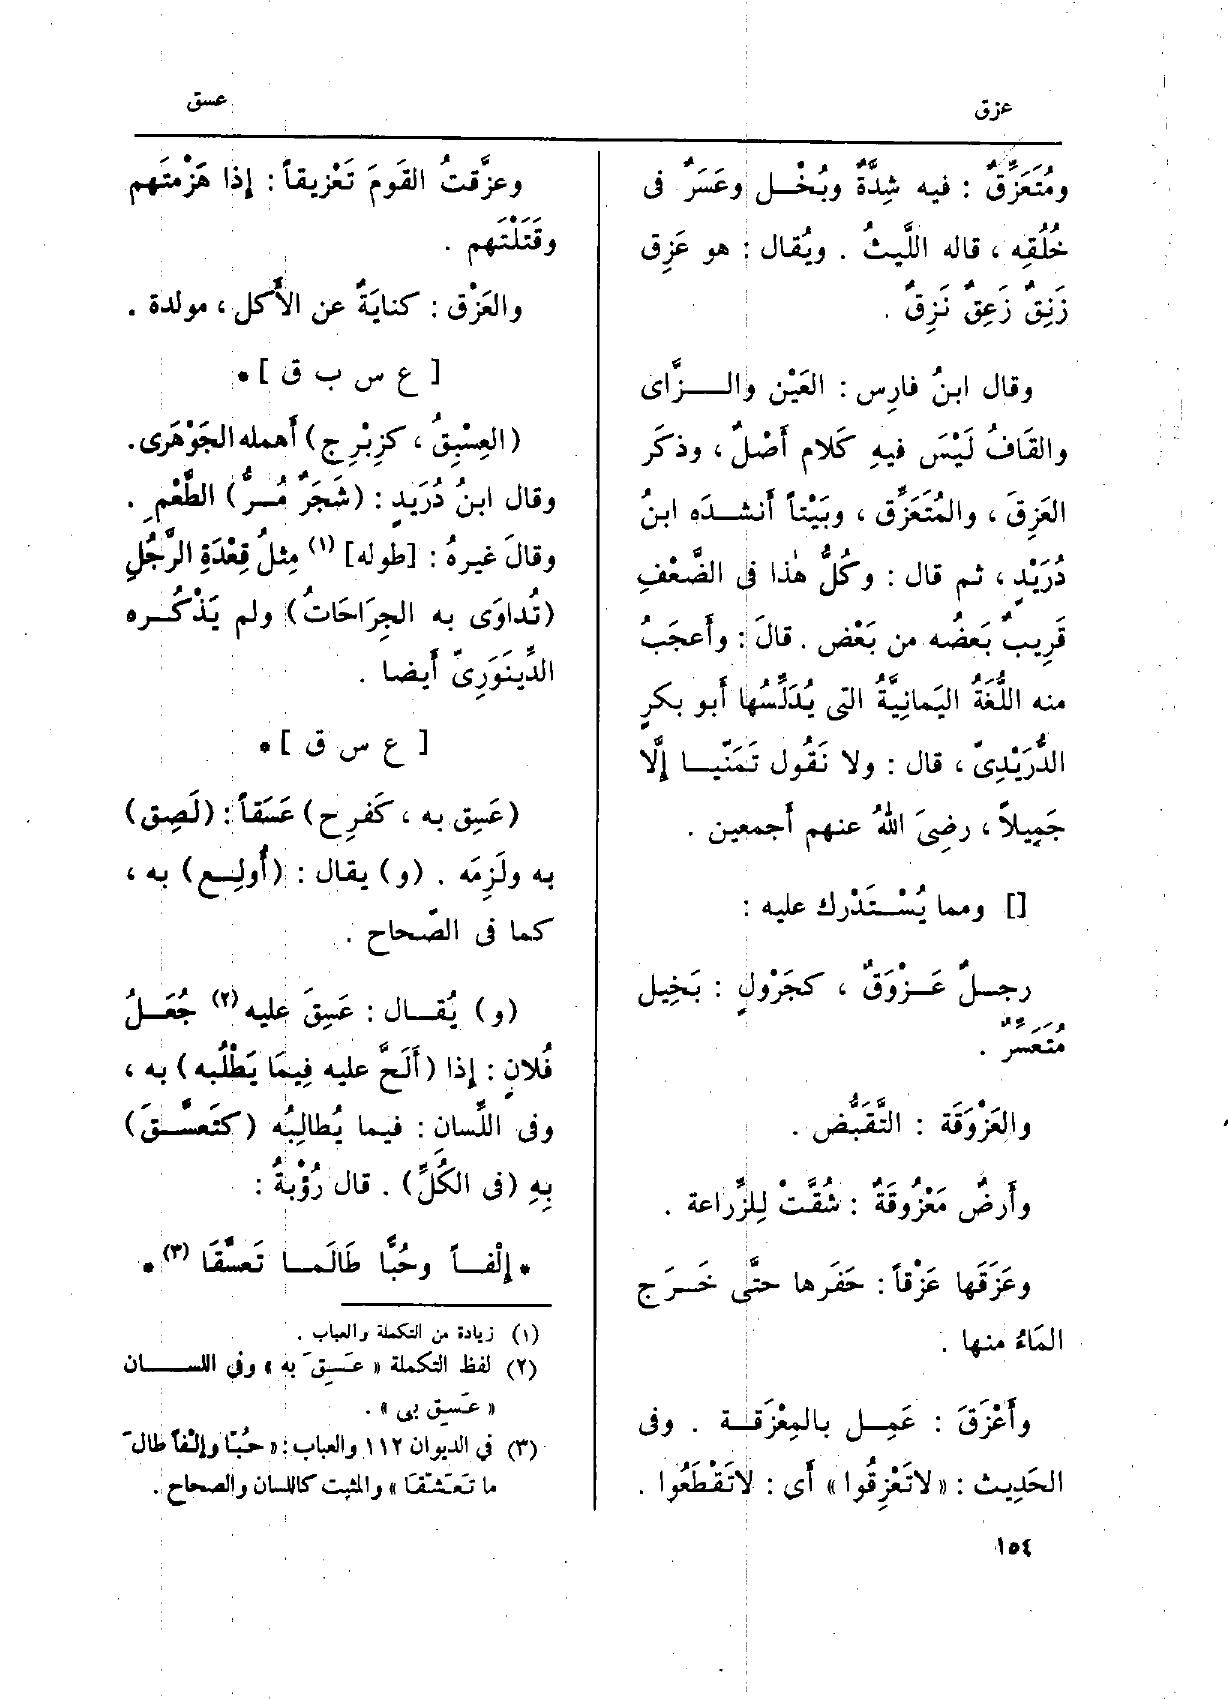 عزق
عسق
ومُتَعَزِّقٌ : فيه شِدَّةٌ وبُخْل وعَسَرٌ فى
خُلُقِه ، قاله اللَّيثُ . ويُقال : هو عَزِق
زَنِقٌ زَعِقٌ نَزِقٌ .
وقال ابنُ فارِس : العَيْن والزَّاى
والقَافُ لَيْسَ فيهِ كَلام أَصْلٌ ، وذكَر
العَزِقَ ، والمُتَعَزِّق ، وبَيْتاً أَنشده ابنُ
دُرَيْدٍ ، ثم قال : وكُلُّ هٰذا فى الضَّعْفِ
قَرِيبٌ بَعضُه من بَعْض . قالَ : وأَعجَبُ
منه اللُّغَةُ اليَمانِيَّةُ التى يُدَلِّسُها أَبو بكرٍ
الدُّرَيْدِىّ ، قال : ولا نَقُول تَمَنّيا إِلَّا
جَمِيلاً ، رضِىَ اللهُ عنهم أَجمعين .
[] ومما يُسْتَدْرك عليه :
رجلٌ عَزْوَقٌ ، كجَرْولٍ : بَخِيل
مُتَعَسِّرٌ .
والعَزْوَقَة : التَّقَبُّض .
وأَرضٌ مَعْزُوقَةٌ : شُقَّتْ لِلزِّراعة .
وعَزَقَها عَزْقاً : حَفَرها حتَّى خَرَج
المَاءُ منها .
وأَعْزَقَ : عَمِل بالمِعْزَقة . وفى
الحَدِيث : « لاتَعْزِقُوا » أَى : لاتَقْطَعُوا .
وعزَّقتُ القَومَ تَعْزيقاً : إِذا هَزَمْتَهم
وقَتَلْتَهم .
والعَزْق : كنايَةٌ عن الأَكل ، مولدة .
[ ع س ب ق ] *
(العِسْبِقُ ، كزِبْرِج) أَهمله الجَوْهَرى.
وقال ابنُ دُرَيدٍ : (شَجَرٌ مُرُّ) الطَّعْمِ .
وقالَ غيرهُ : [طوله] (١) مِثلُ قِعْدَةِ الرَّجُلِ
(تُداوَى به الجِرَاحَاتُ) ولم يَذْكُره
الدِّينَوَرِىّ أَيضا .
[ ع س ق ] *
(عَسِق به ، كَفرِح) عَسَقاً : (لَصِق)
به ولَزِمَه . (و) يقال : (أُولِع) به ،
كما فى الصّحاح .
(و) يُقال : عَسِقَ عليه (٢) جُعَلُ
فُلانٍ : إِذا (أَلَحَّ عليه فِيمَا يَطْلُبه) به ،
وفى اللِّسانِ : فيما يُطالِبُه (كتَعسَّقَ)
بِهِ (فى الكُلِّ) . قال رُؤْبةُ :
* إِلْفاً وحُبًّا طَالَما تَعسَّقَا (٣) *
(١) زيادة من التكملة والعباب .
(٢) لفظ التكملة « عَسِقَ به » وفي اللسان
« عَسِق بى » .
(٣) في الديوان ١١٢ والعباب : « حُبًّا وإِلْفاً طالَ
ما تَعَشَّقَا » والمثبت كاللسان والصحاح .
١٥٤